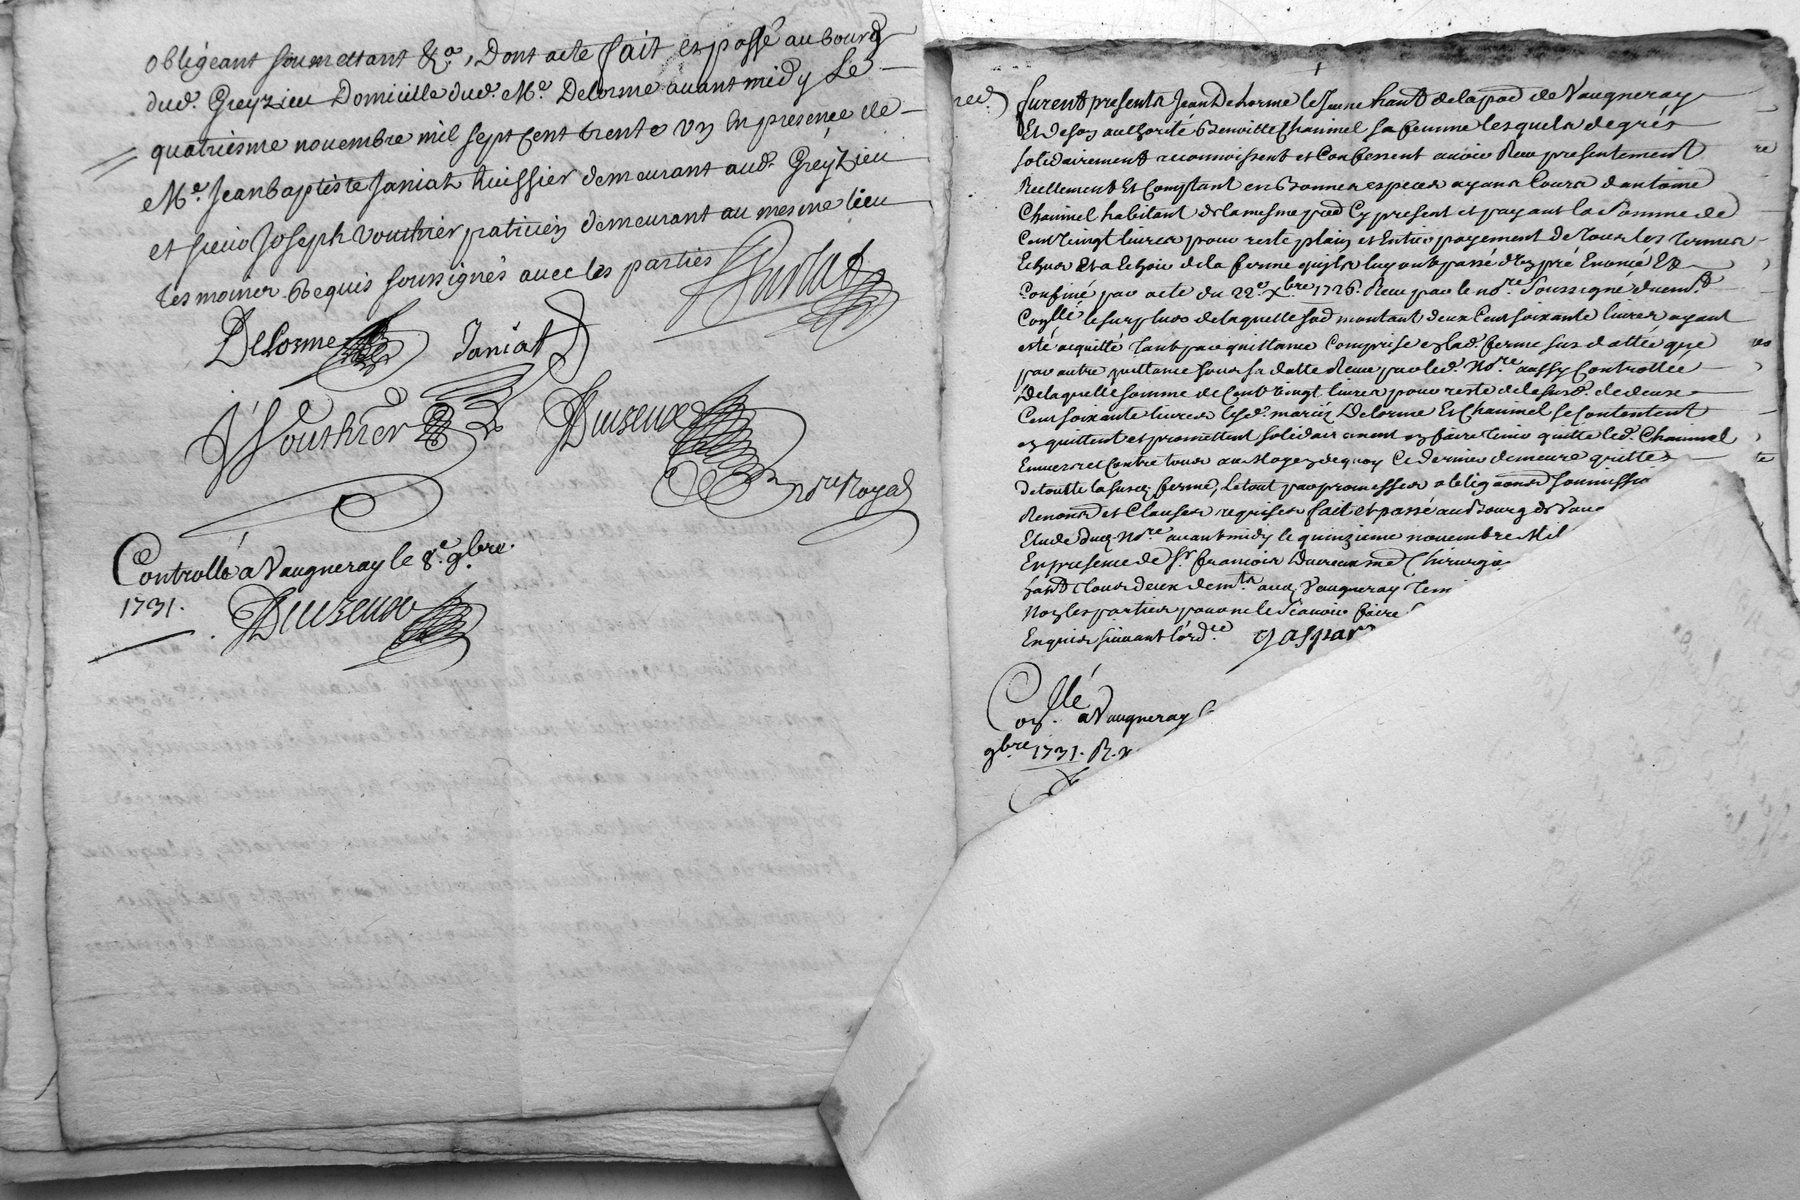 obligeant soumettant &c.ª, Dont acte fait et passé au bourg
dud. Greyzieu Domicille dud. Me. Delorme avant midy Le
quatriesme novembre mil sept cent trente un En presence de
Me. Jean baptiste Janiat huissier demeurant aud. Greyzieu
et sieur Joseph Vouthier paticien demeurant au mesme lieu
tesmoins Requis soussignés avec les parties
Delorme Janiat
J Vouthier Duiseux
nore Royal
Controllé a Vaugneray le 8e. 9bre.
1731. Duiseux
furent presents Jean Delorme le Jeune hant de la pad de Vaugneray
Et de son authorité Benoitte Chanınel sa femme lesquels de grés
solidairement reconnoissent et Confessent avoir Reçu presentement
Reellement Et Comptant en Bonnes especes ayans Cours d'antoine
Chaninel habitant de la mesme pad Cy present et payant la Somme de
Cent vingt livres pour reste plain et Entier payement de tous les termes
Echus Et a Echoir de la ferme quils luy ont passé d'un pré Enoncé Et
Confiné par acte du 22e. Xbre 1726. Reçu par le nore Soussigné duemt
Conllé le surplus de laquelle montant deux Cent soixante livres ayant
esté acquitté tant par quittance Comprise en lad. ferme sus dattée que
par autre quittance sous sa datte Reçue par led. Nore aussy Controllée
De laquelle somme de Cent vingt livres pour reste de lesusd. de deux
Cent soixante livres lesd. mariéz Delorme Et Chaninel se Contentent
en quittent et promettent solidairement en faire tenir quitte led. Chaninel
Envers et Contre tous au Moyen de quoy Ce dernier demeure quitte
de toutte la susd. ferme, le tout par promesses obligaons Soumissio
Renons et Clauses requises fait et passé au Bourg de Vaug
Etude dud. Nore avant midy le quinzieme novembre Mil
En presence de Sr. francois Chirurgi
hant tous deux demts aud. Vaugneray Tem
Non les parties pour ne le scavoir faire
Enquis suivant l'ordce Gaspar
Conllé a Vaugneray
9bre 1731. R.